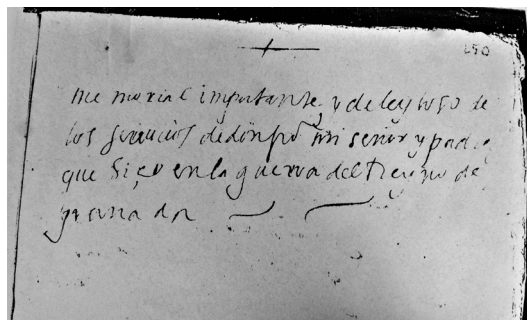 250
me morial ynportante y de leytoso de
los seruicios de don po mi señor y padre
que Hiço en la guerra del Reyno de
granada